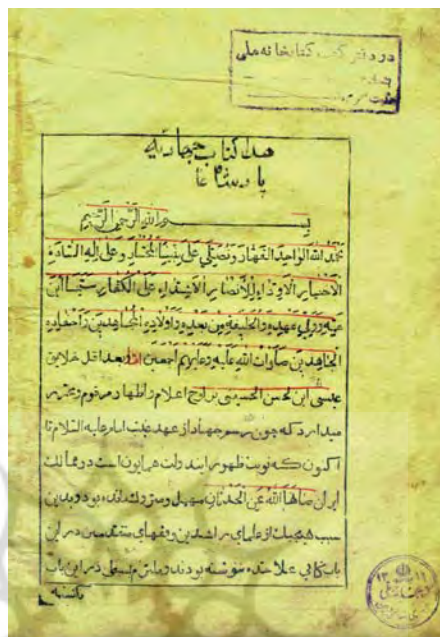 در دفتر کتب کتابخانه ملی
ثبت
هذا کتاب جهادیه
بسم الله الرحمن الرحیم
نحمد الله الواحد القهار و نصلی علی نبینا المختار و علی اله السادة
الاخیار الاوداء للانصار الاشداء علی الکفار سیما ابن
عمه و ولی عهده و الخلیفة من بعده و اولاده المجاهدین و احفاده
الجاهدین صلوات الله علیه و علیهم اجمعین اما بعد اقل خلایق
عیسی ابن الحسن الحسینی بر لوح اعلام و اظهار مرقوم و محرر
میدارد که چون رسم جهاد از عهد غیبت امام علیه السلام تا
اکنون که نوبت ظهور رایت دولت همایون است در ممالک
ایران صانها الله عن الحدثان مهمل و متروک مانده بود و بدین
سبب هیچیک از علمای راشدین و فقهای متقدمین در این
باب کتابی علاحده ننوشته بودند و مبسطی در این باب